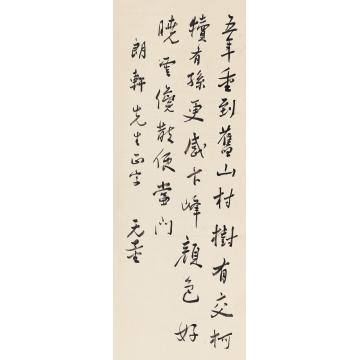 五年重到舊山村樹有交柯
犢有孫更感卞峰顏色好
曉雲纔散便當門
朗軒先生正字 无量